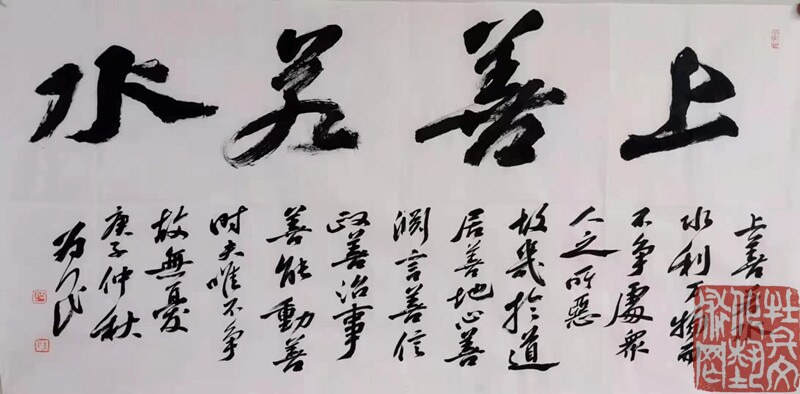 上善若水
上善若
水利万物而
不争處衆
人之所惡
故幾於道
居善地心善
渊言善信
政善治事
善能動善
时夫唯不争
故無憂
庚子仲秋
为民